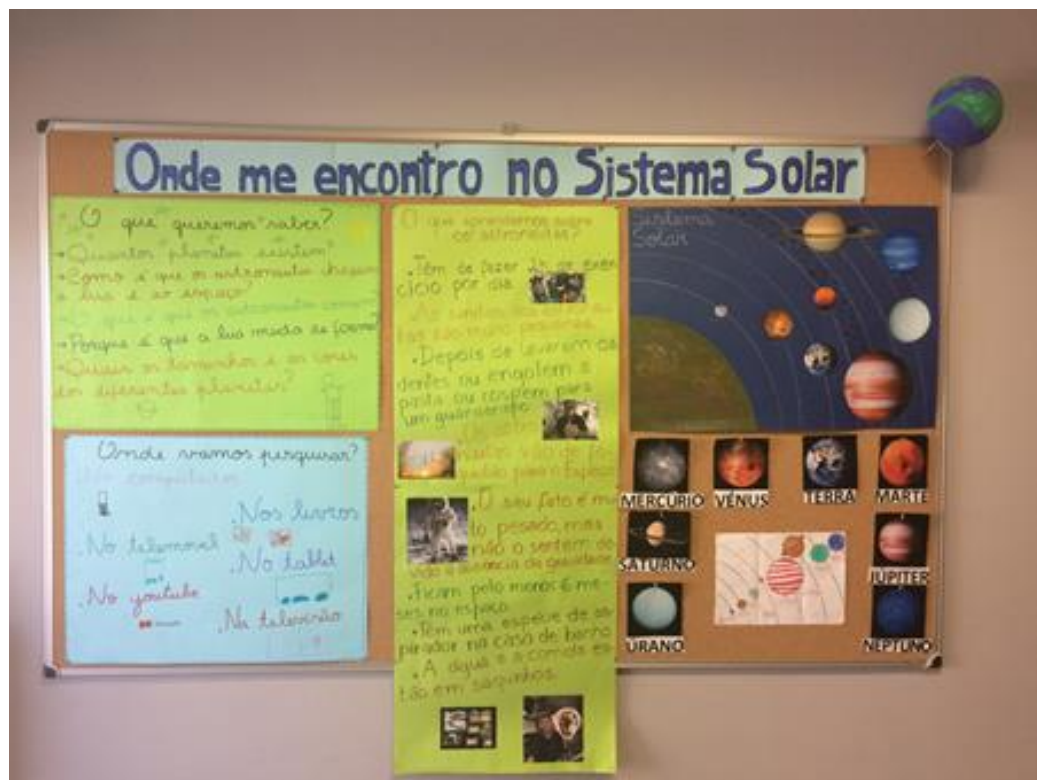 Onde me encontro no Sistema Solar
O que queremos saber?
Quantos planetas existem?
Como é que os astronautas chegam
à lua e ao espaço?
O que é que os astronautas comem?
Porque é que a lua muda de forma?
Quais os tamanhos e as cores
dos diferentes planetas?
Onde vamos pesquisar?
No computador
.Nos livros
.No telemóvel
.No tablet
.No youtube
.Na televisão
O que aprendemos sobre
os astronautas?
.Têm de fazer 2h de exer
cício por dia
são mais pequenas.
.Depois de lavarem os
dentes ou engolem a
pasta ou cospem para
um guardanapo.
vão de fo
guetão para o Espaço
.O seu fato é mui
to pesado, mas
não o sentem de
vido à ausência da gravidade
.Ficam pelo menos 6 me
ses no espaço.
.Têm uma espécie de as
pirador na casa de banho
.A água e a comida es
tão em saquinhos.
Sistema
Solar
MERCÚRIO VÉNUS TERRA MARTE
SATURNO
JÚPITER
URANO
NEPTUNO